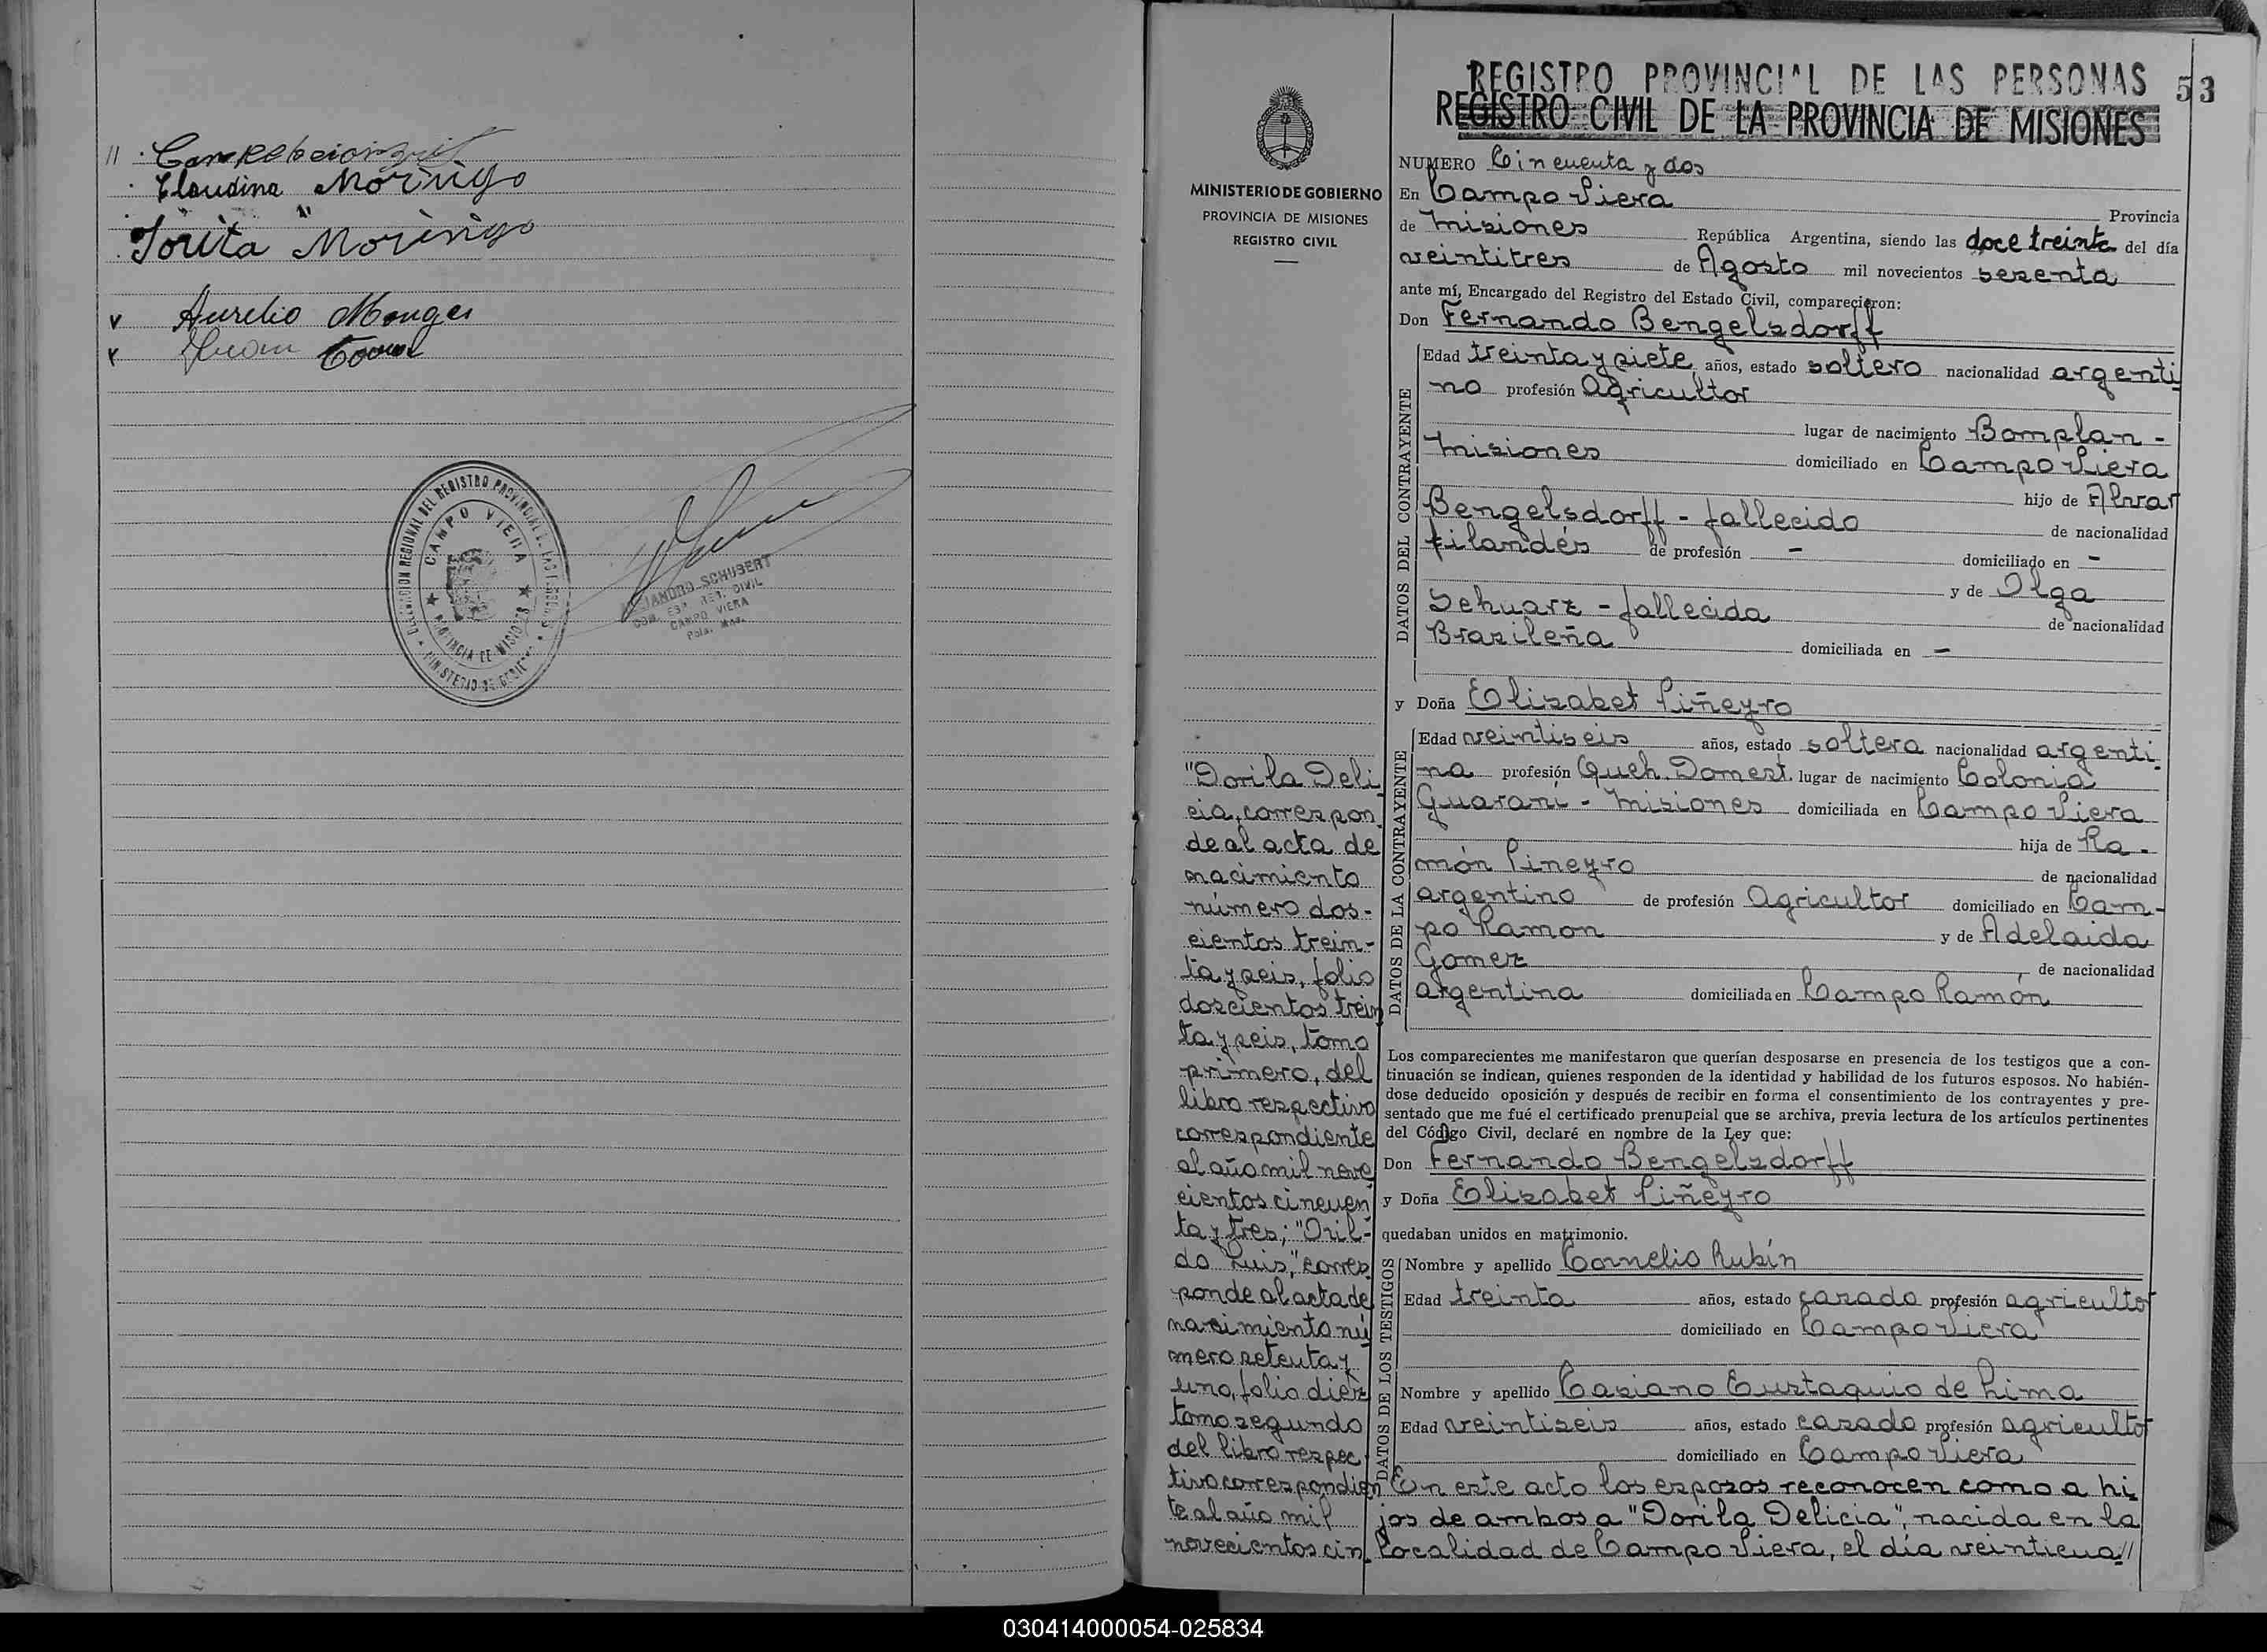 Claudina Morinigo
Morinigo
Aurelio Monges
Juan
DELEGACION REGIONAL DEL REGISTRO PROVINCIAL DE LAS PERSONAS
CAMPO VIERA
PROVINCIA DE MISIONES
MINISTERIO DE GOBIERNO
ALEJANDRO SCHUBERT
REG. CIVIL
CAMPO VIERA
Pcia. Mnes.
REGISTRO PROVINCIAL DE LAS PERSONAS 53
REGISTRO CIVIL DE LA PROVINCIA DE MISIONES
MINISTERIO DE GOBIERNO
PROVINCIA DE MISIONES
REGISTRO CIVIL
NUMERO Cincuenta y dos
En Campo Viera Provincia
de Misiones República Argentina, siendo las doce treinta del día
veintitres de Agosto mil novecientos sesenta
ante mí, Encargado del Registro del Estado Civil, comparecieron:
Don Fernando Bengelsdorff
DATOS DEL CONTRAYENTE
Edad treinta y siete años, estado soltero nacionalidad argenti
no profesión Agricultor
lugar de nacimiento Bomplan -
Misiones domiciliado en Campo Viera
hijo de Alvar
Bengelsdorff - fallecido de nacionalidad
filandés de profesión - domiciliado en -
y de Olga
Schuarz - fallecida de nacionalidad
Brasileña domiciliada en -
y Doña Elisabet Piñeyro
DATOS DE LA CONTRAYENTE
Edad veintiseis años, estado soltera nacionalidad argenti
na profesión Queh. Domest. lugar de nacimiento Colonia
Guaraní - Misiones domiciliada en Campo Viera
hija de Ra-
món Pineyro de nacionalidad
argentino de profesión Agricultor domiciliado en Cam-
po Ramon y de Adelaida
Gomez de nacionalidad
argentina domiciliada en Campo Ramón
Los comparecientes me manifestaron que querían desposarse en presencia de los testigos que a con-
tinuación se indican, quienes responden de la identidad y habilidad de los futuros esposos. No habién-
dose deducido oposición y después de recibir en forma el consentimiento de los contrayentes y pre-
sentado que me fué el certificado prenupcial que se archiva, previa lectura de los artículos pertinentes
del Código Civil, declaré en nombre de la Ley que:
Don Fernando Bengelsdorff
y Doña Elisabet Piñeyro
quedaban unidos en matrimonio.
DATOS DE LOS TESTIGOS
Nombre y apellido Cornelio Rubín
Edad treinta años, estado casado profesión agricultor
domiciliado en Campo Viera
Nombre y apellido Casiano Eustaquio de Lima
Edad veintiseis años, estado casado profesión agricultor
domiciliado en Campo Viera
En este acto los esposos reconocen como a hi
jos de ambos a "Dorila Delicia", nacida en la
localidad de Campo Viera, el día veinticua//
"Dorila Deli
cia, correspon
de al acta de
nacimiento
número dos-
cientos trein-
ta y seis, folio
doscientos trein
ta y seis, tomo
primero, del
libro respectivo
correspondiente
al año mil nove
cientos cincuen
ta y tres; "Oril-
do Luis," corres
ponde al acta de
nacimiento nú
mero setenta y
uno, folio diez
tomo segundo
del libro respec
tivo correspondien
te al año mil
novecientos cin
030414000054-025834